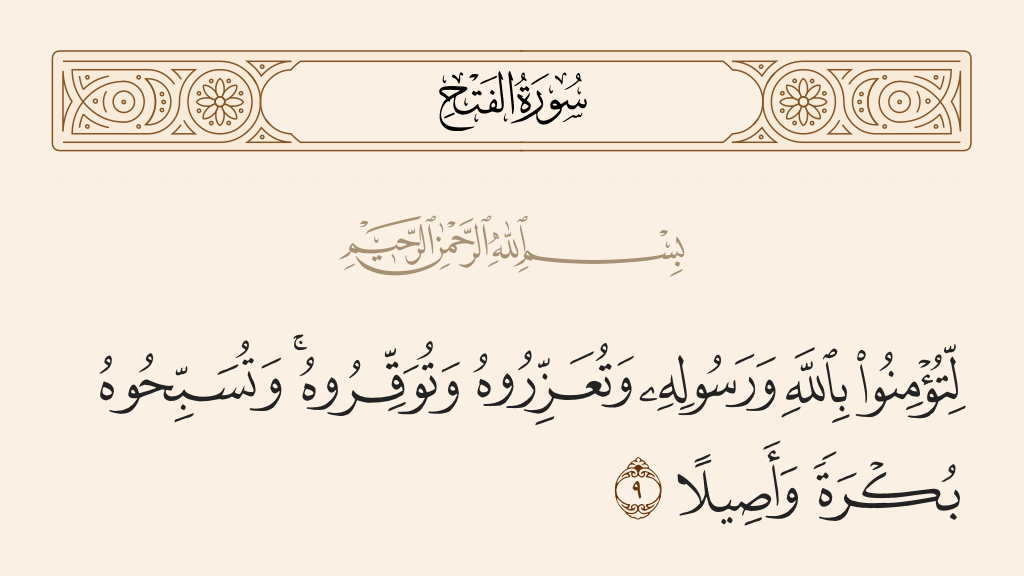 سُورَةُ الفَتْحِ
بِسْمِ ٱللَّهِ ٱلرَّحْمَٰنِ ٱلرَّحِيمِ
لِّتُؤْمِنُوا۟ بِٱللَّهِ وَرَسُولِهِۦ وَتُعَزِّرُوهُ وَتُوَقِّرُوهُ ۚ وَتُسَبِّحُوهُ
بُكْرَةً وَأَصِيلًا ٩